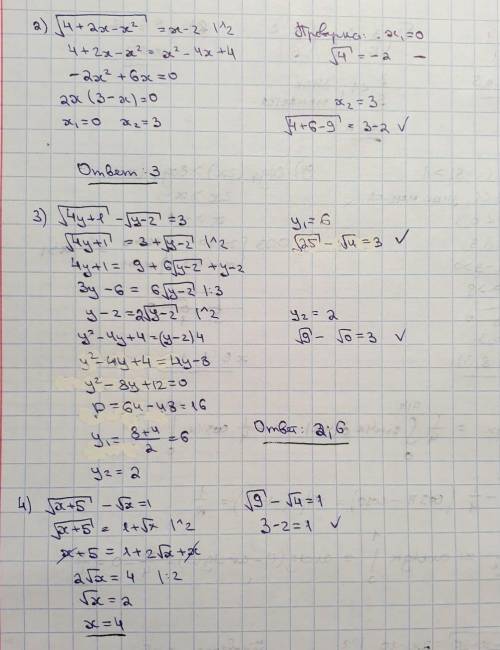 2) √(4+2x-x²) = x-2 |^2
4+2x-x² = x²-4x+4
-2x²+6x=0
2x(3-x)=0
x₁=0 x₂=3
Проверка: x₁=0
√4 = -2 –
x₂=3
√(4+6-9) = 3-2 ✓
Ответ: 3
3) √(4y+1) - √(y-2) = 3
√(4y+1) = 3+√(y-2) |^2
4y+1 = 9+6√(y-2)+y-2
3y-6 = 6√(y-2) |:3
y-2=2√(y-2) |^2
y²-4y+4=(y-2)4
y²-4y+4=4y-8
y²-8y+12=0
D=64-48=16
y₁=(8+4)/2=6
y₂=2
y₁=6
√25 - √4=3 ✓
y₂=2
√9 - √0=3 ✓
Ответ: 2;6
4) √(x+5) - √x=1
√(x+5) = 1+√x |^2
x+5=1+2√x+x
2√x=4 |:2
√x=2
x=4
√9-√4=1
3-2=1 ✓